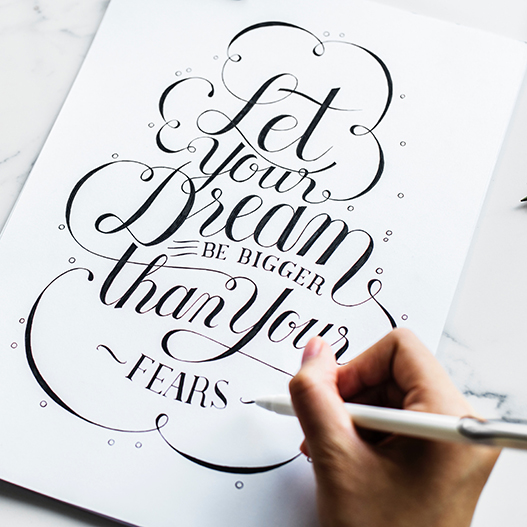 Let
Your
Dream
BE BIGGER
than Your
~FEARS -